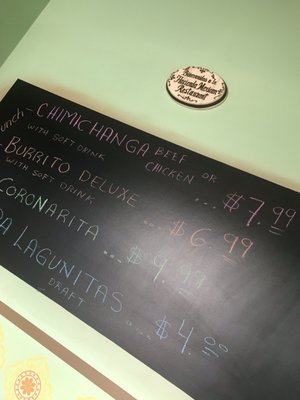 Bienvenidos a la
Hacienda Mexican
Restaurant
unch - CHIMICHANGA BEEF OR
WITH SOFT DRINK CHICKEN ... $7.99
BURRITO DELUXE
WITH SOFT DRINK ... $6.99
CORONARITA ... $9.99
DA LAGUNITAS
DRAFT ... $4.00